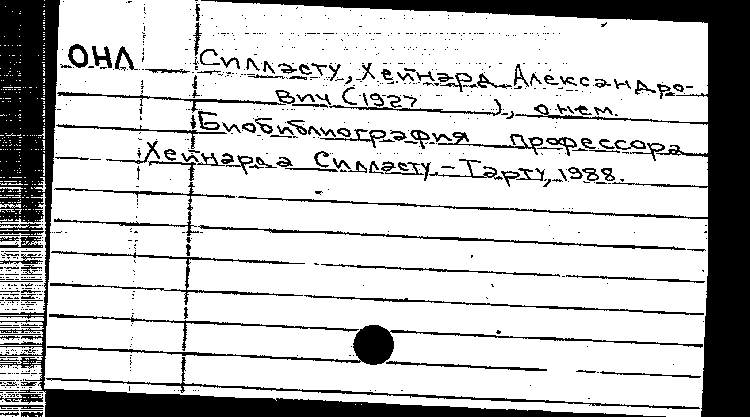 ОНЛ Силласту, Хейнард Александро-
вич (1927 ), о нем.
Биобиблиография профессора
Хейнарда Силласту. – Тарту, 1988.